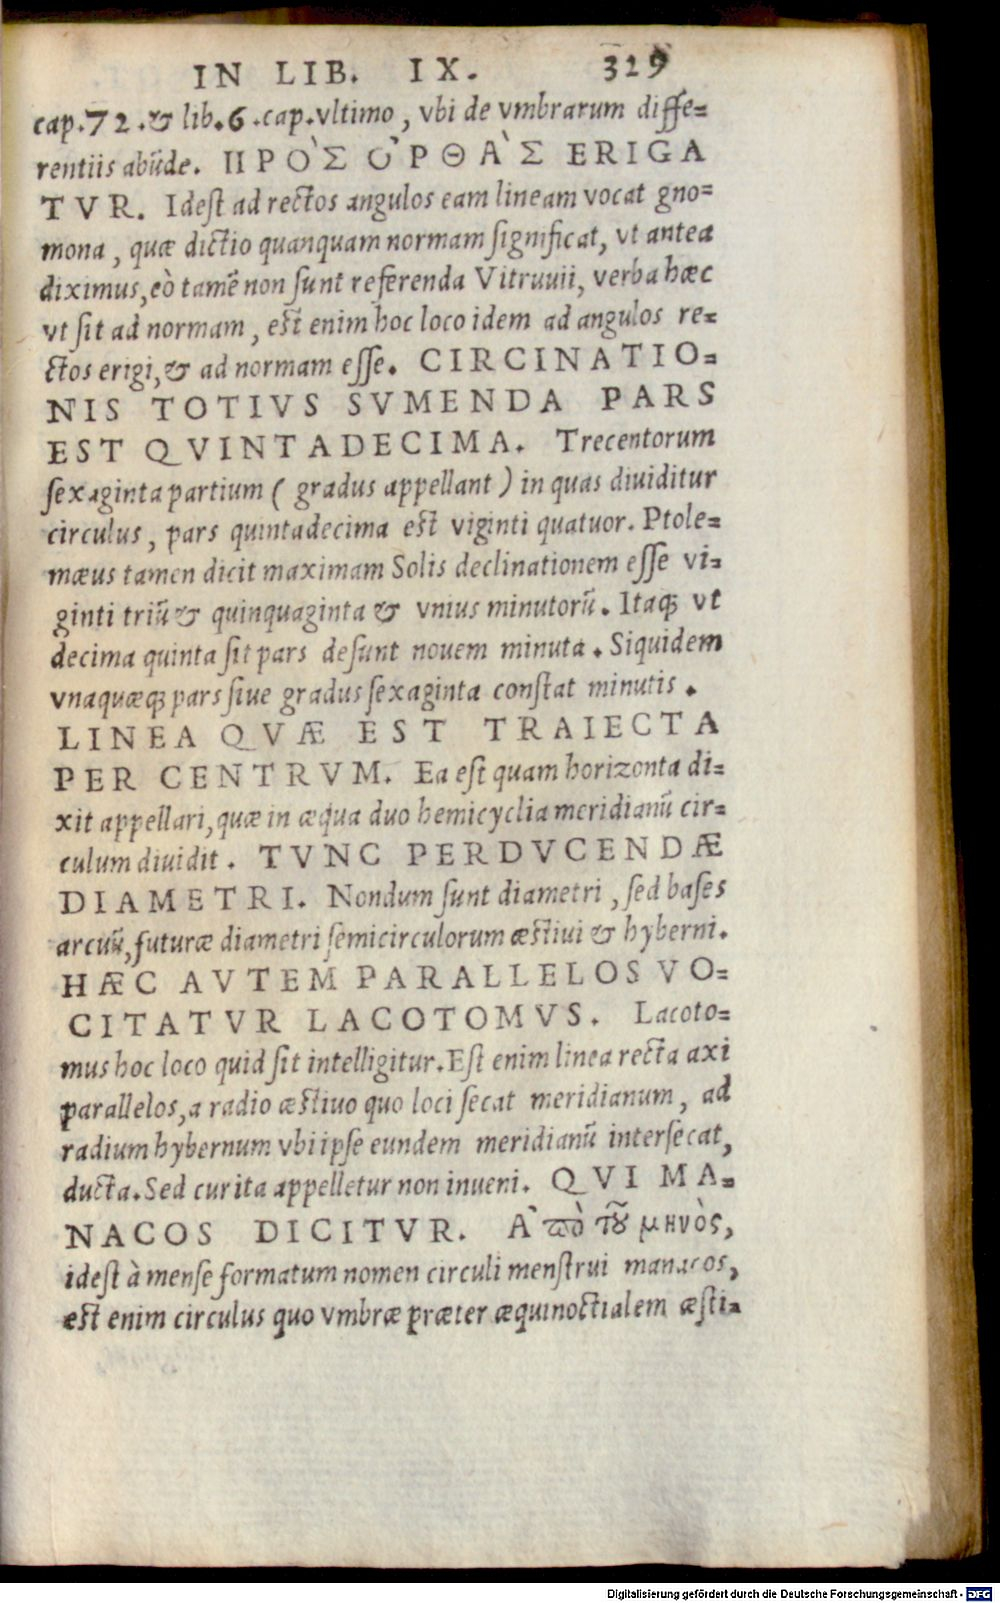 IN LIB. IX. 329
cap.72.& lib.6.cap.vltimo, vbi de vmbrarum diffe=
rentiis abũde. ΠΡΟ`Σ Ο᾿ΡΘΑ`Σ ERIGA
TVR. Idest ad rectos angulos eam lineam vocat gno=
mona, quæ dictio quanquam normam significat, vt antea
diximus, eò tamẽ non sunt referenda Vitruuii, verba hæc
vt sit ad normam, est enim hoc loco idem ad angulos re=
ctos erigi, & ad normam esse. CIRCINATIO=
NIS TOTIVS SVMENDA PARS
EST QVINTADECIMA. Trecentorum
sexaginta partium ( gradus appellant ) in quas diuiditur
circulus, pars quintadecima est viginti quatuor. Ptole=
mæus tamen dicit maximam Solis declinationem esse vi=
ginti triũ & quinquaginta & vnius minutorũ. Itaq; vt
decima quinta sit pars desunt nouem minuta. Siquidem
vnaquæq; pars siue gradus sexaginta constat minutis.
LINEA QVÆ EST TRAIECTA
PER CENTRVM. Ea est quam horizonta di=
xit appellari, quæ in æqua duo hemicyclia meridianũ cir=
culum diuidit. TVNC PERDVCENDÆ
DIAMETRI. Nondum sunt diametri, sed bases
arcuũ, futuræ diametri semicirculorum æstiui & hyberni.
HÆC AVTEM PARALLELOS VO=
CITATVR LACOTOMVS. Lacoto=
mus hoc loco quid sit intelligitur. Est enim linea recta axi
parallelos, a radio æstiuo quo loci secat meridianum, ad
radium hybernum vbi ipse eundem meridianũ intersecat,
ducta. Sed cur ita appelletur non inueni. QVI MA=
NACOS DICITVR. Α᾿πὸ τοῦ μηνὸς,
idest à mense formatum nomen circuli menstrui manacos,
est enim circulus quo vmbræ præter æquinoctialem æsti=
Digitalisierung gefördert durch die Deutsche Forschungsgemeinschaft - DFG